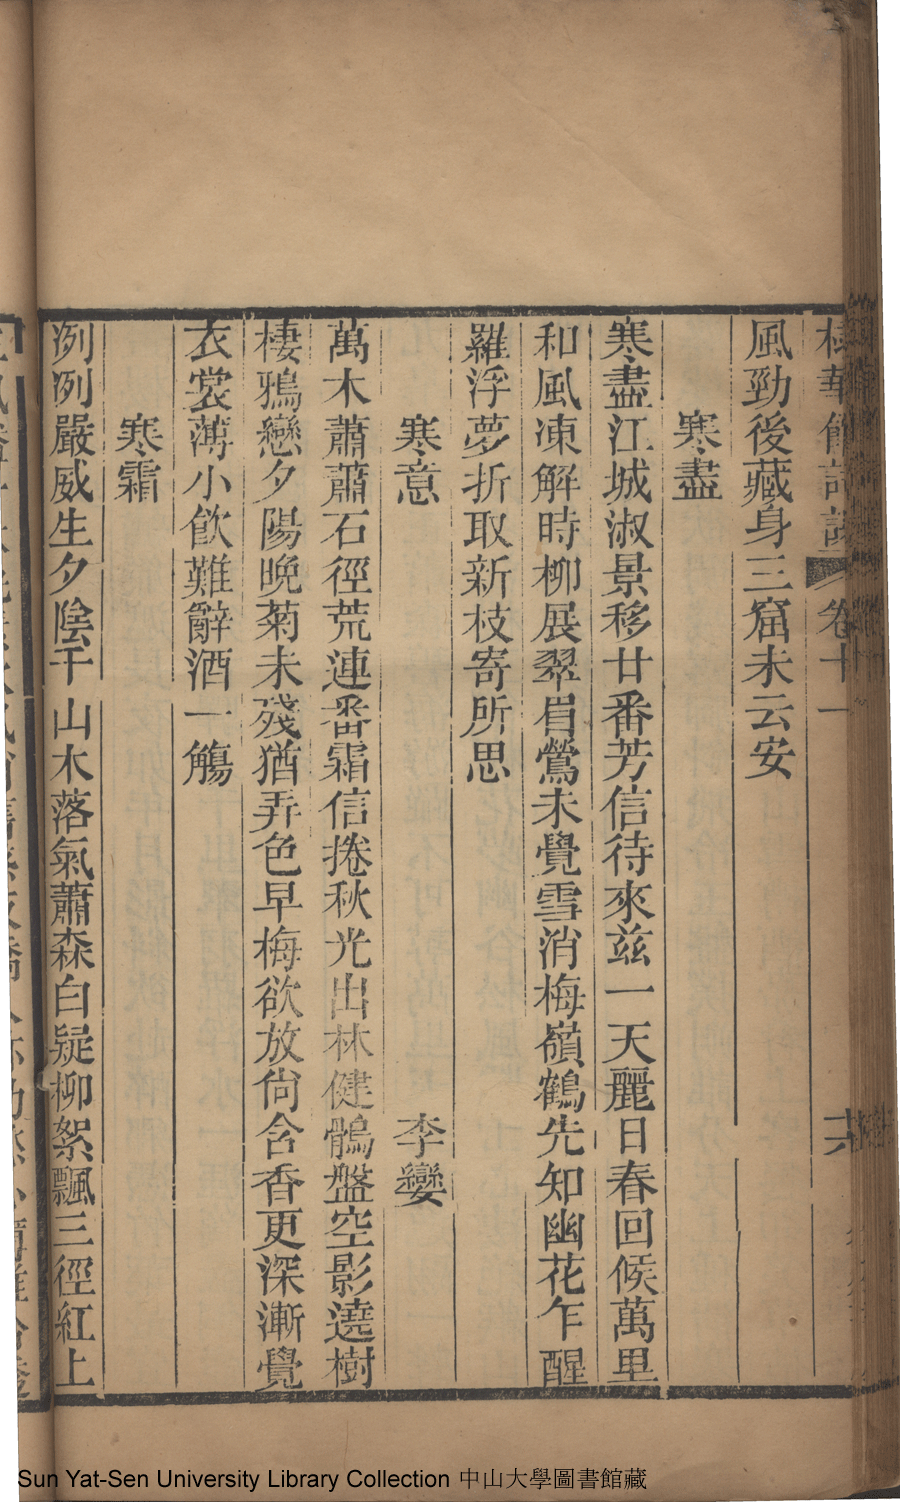 卷十一
風勁後藏身三窟未云安
寒盡
寒盡江城淑景移廿番芳信待來兹一天麗日春回候萬里
和風凍解時柳展翠眉鶯未覺雪消梅嶺鶴先知幽花乍醒
羅浮夢折取新枝寄所思
寒意
李孌
萬木蕭蕭石徑荒連番霜信捲秋光出林健鶻盤空影遶樹
棲鴉戀夕陽晚菊未殘猶弄色早梅欲放尙含香更深漸覺
衣裳薄小飮難辭酒一觴
寒霜
冽冽嚴威生夕陰千山木落氣蕭森白疑柳絮飄三徑紅上
Sun Yat-Sen University Library Collection 中山大學圖書館藏